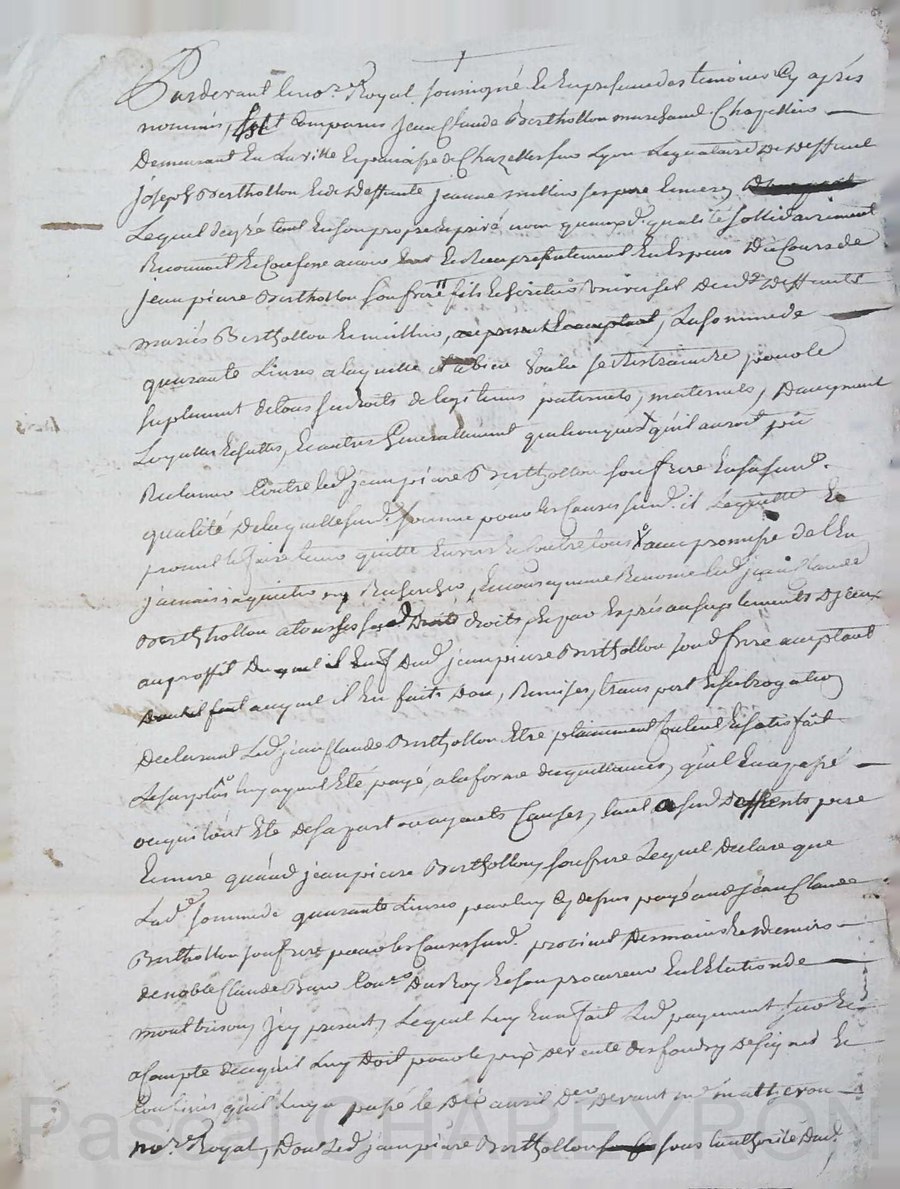 1
Pardevant le no.re Royal soussigné Et En presence des temoins Cy après
nommés, fut Comparus Jean Claude Berthollon marchand Chapellier
Demeurant En La ville Et paroisse de Chazelles sur Lyon Legataire De Deffunt
Joseph Berthollon Et de Deffunte Jeanne millier ses pere Et mere,
Lequel de gré tant En son propre Et privé nom quaux d. qualité sollidairement
Reconnoit Et Confesse avoir Eu Et Receu presentement En Espèces Du Cours de
Jean pierre Berthollon son frere fils Et heritier Universel Des d. Deffunts
mariés Berthollon Et millier, La somme de
quarante Livres a laquelle il a bien voulu se Restraindre pour le
suplement de tous ses droits de legitimes paternels, maternels, D'augment
Loyaltes Echuttes, Et autres Generallement quelconques qu'il auroit pûe
Reclamer Contre led. Jean pierre Berthollon son frere En sa susd.
qualité De laquelle susd. somme pour les Causes susd. il Le quitte Et
promet le faire tenir quitte Envers Et Contre tous avec promesse de l'En
Jamais inquieter ny Rechercher, Renonce led. Jean Claude
Berthollon a tous ses droits, Et par Exprés au suplements D'yceux
au proffit Dud. Jean pierre Berthollon sond. frere acceptant
auquel il En fait Don, Remises, transport Et subrogation
Declarant Led. Jean Claude Berthollon Etre plainement Content Et satisfait
Le surplus luy ayant Eté payé, a la forme des quittances, qu'il En a passé
ou qui l'ont Eté De sa part ou ayants Causes, tant a susd. Deffunts pere
Et mere quaud. Jean pierre Berthollon, son frere Lequel Declare que
Lad. somme de quarante Livres par luy Cy dessus payé aud. Jean Claude
Berthollon son frere pour les Causes susd. provient Des mains Et deniers
de noble Claude Con.er Du Roy Et son procureur En L'Election de
montbrison, Icy present, Lequel luy En a fait Led. payement sur Et
a Compte De ce qu'il Luy Doit pour le prix de vente des fonds Designés Et
Confinés qu'il luy a passé le Dix avril D.er Devant m.e
no.re Royal, Dont Led. Jean pierre Berthollon sous L'authorité Dud.
Pascal CHAREYRON